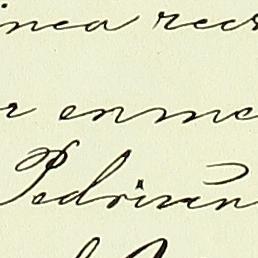 inea rec
r enme
Pedrivan